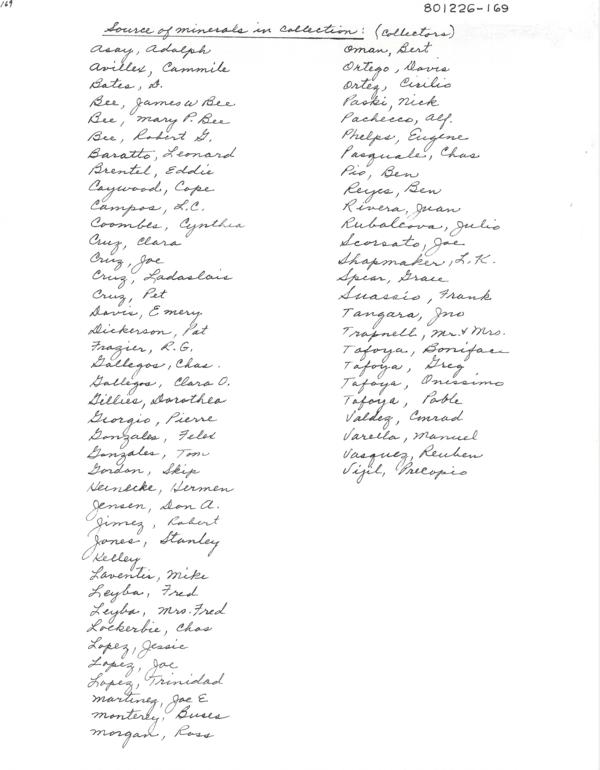 169
801226-169
Source of minerals in collection: (Collectors)
Asay, Adolph
Avilles, Cammile
Bates, D.
Bee, James W Bee
Bee, Mary P. Bee
Bee, Robert G.
Baratto, Leonard
Brentel, Eddie
Caywood, Cope
Campos, L.C.
Coombes, Cynthia
Cruz, Clara
Cruz, Joe
Cruz, Ladaslais
Cruz, Pet
Davis, Emery
Dickerson, Pat
Frazier, R.G.
Gallegos, Chas.
Gallegos, Clara O.
Gillies, Dorothea
Giorgio, Pierre
Gonzales, Feles
Gonzales, Tom
Gordon, Skip
Heinecke, Hermen
Jensen, Don A.
Jimez, Robert
Jones, Stanley
Kelley
Laventis, Mike
Leyba, Fred
Leyba, Mrs. Fred
Lockerbie, Chas
Lopez, Jessie
Lopez, Joe
Lopez, Trinidad
Martinez, Joe E
Monterey, Buses
Morgan, Ross
Oman, Bert
Ortego, Davis
Ortez, Cirilio
Paski, Nick
Pachecco, Alf.
Phelps, Eugene
Pasquale, Chas
Pio, Ben
Reyes, Ben
Rivera, Juan
Rubalcova, Julio
Scorsato, Joe
Shapmaker, L.K.
Spear, Grace
Suassio, Frank
Tangara, Jno
Trapnell, Mr. & Mrs.
Tafoya, Boniface
Tafoya, Greg
Tafoya, Onissimo
Tafoya, Pable
Valdez, Conrad
Varella, Manuel
Vasquez, Reuben
Vigil, Precopio